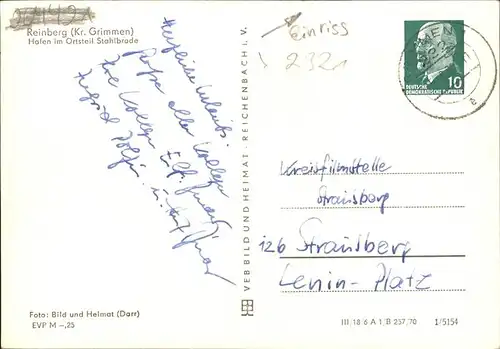 Reinberg (Kr. Grimmen)
Hafen im Ortsteil Stahlbrode
Herzliche Urlaubs-
grüße allen Kollegen
Ihre Kollegen
Ingrid
einriss
2321
DEUTSCHE
DEMOKRATISCHE REPUBLIK
10
e
VEB BILD UND HEIMAT · REICHENBACH I. V.
Kreisfilmstelle
Strausberg
126 Strausberg
Lenin-Platz
Foto: Bild und Heimat (Darr)
EVP M -,25
III 18 6 A 1 B 257/70
1/5154